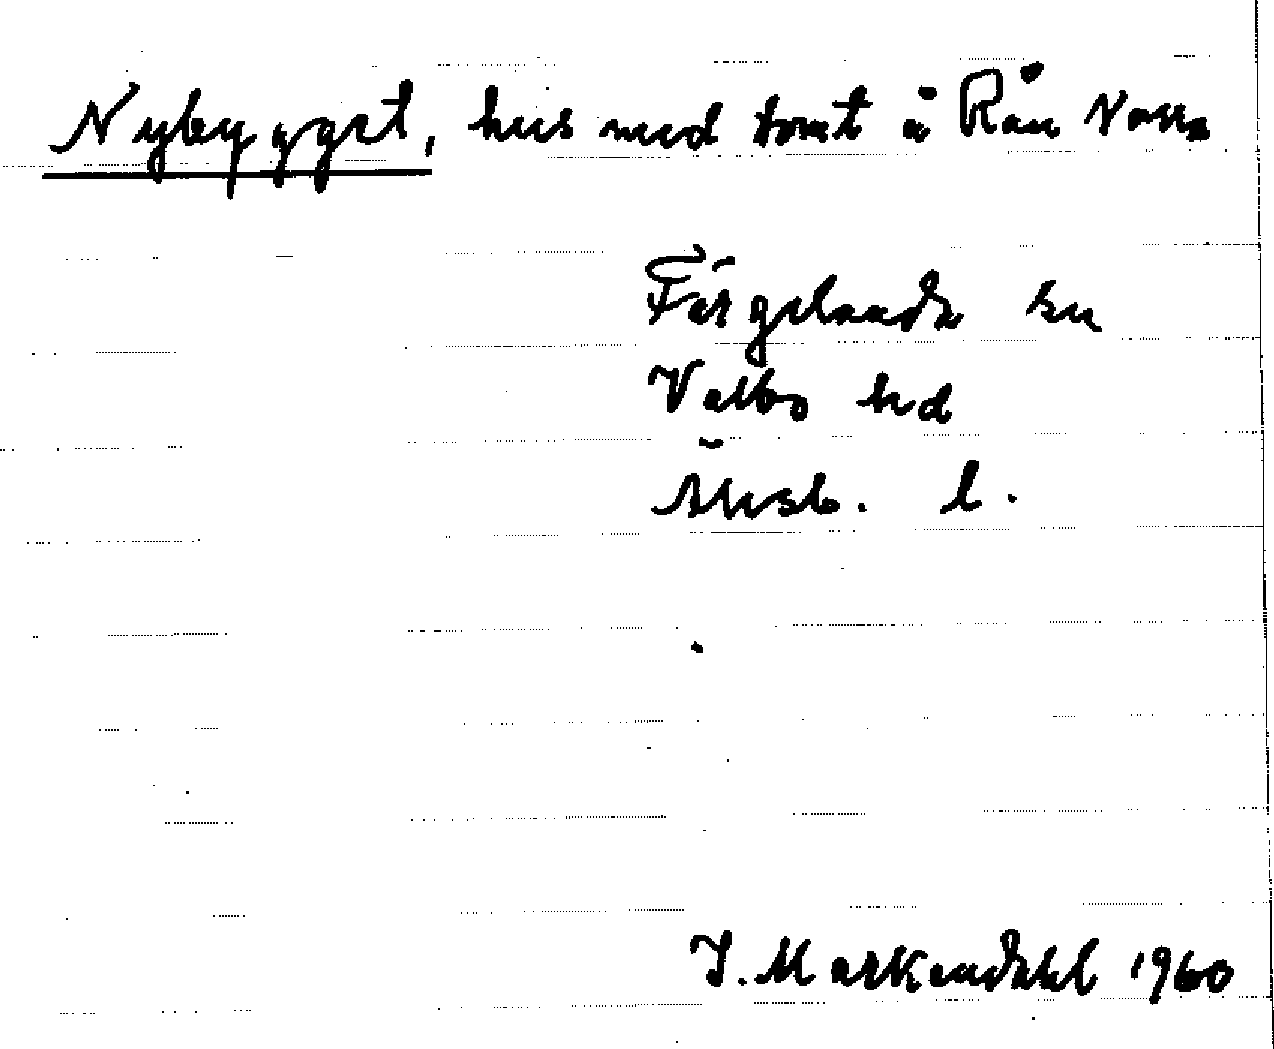 Nybygget, hus med tomt å Rån Norra
Färgelanda sn
Valbo hd
Älvsb. l.
I. Markendahl 1960